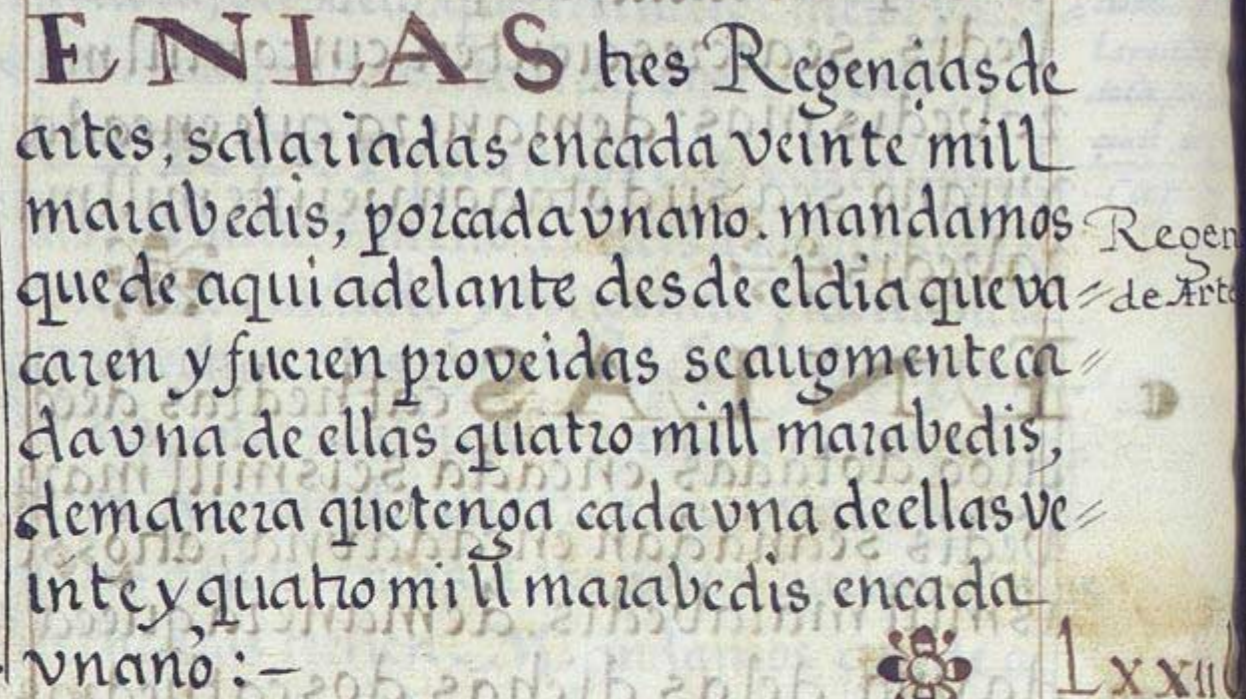 EN LAS tres Regençias de
artes, salariadas en cada veinte mill
marabedis, por cada vn ano. mandamos
que de aqui adelante desde el dia que va=
caren y fueren proveidas se augmente ca=
da vna de ellas quatro mill marabedis,
de manera que tenga cada vna de ellas ve=
inte y quatro mill marabedis en cada
vn ano :-
Regen
de Arte
Lxxiii